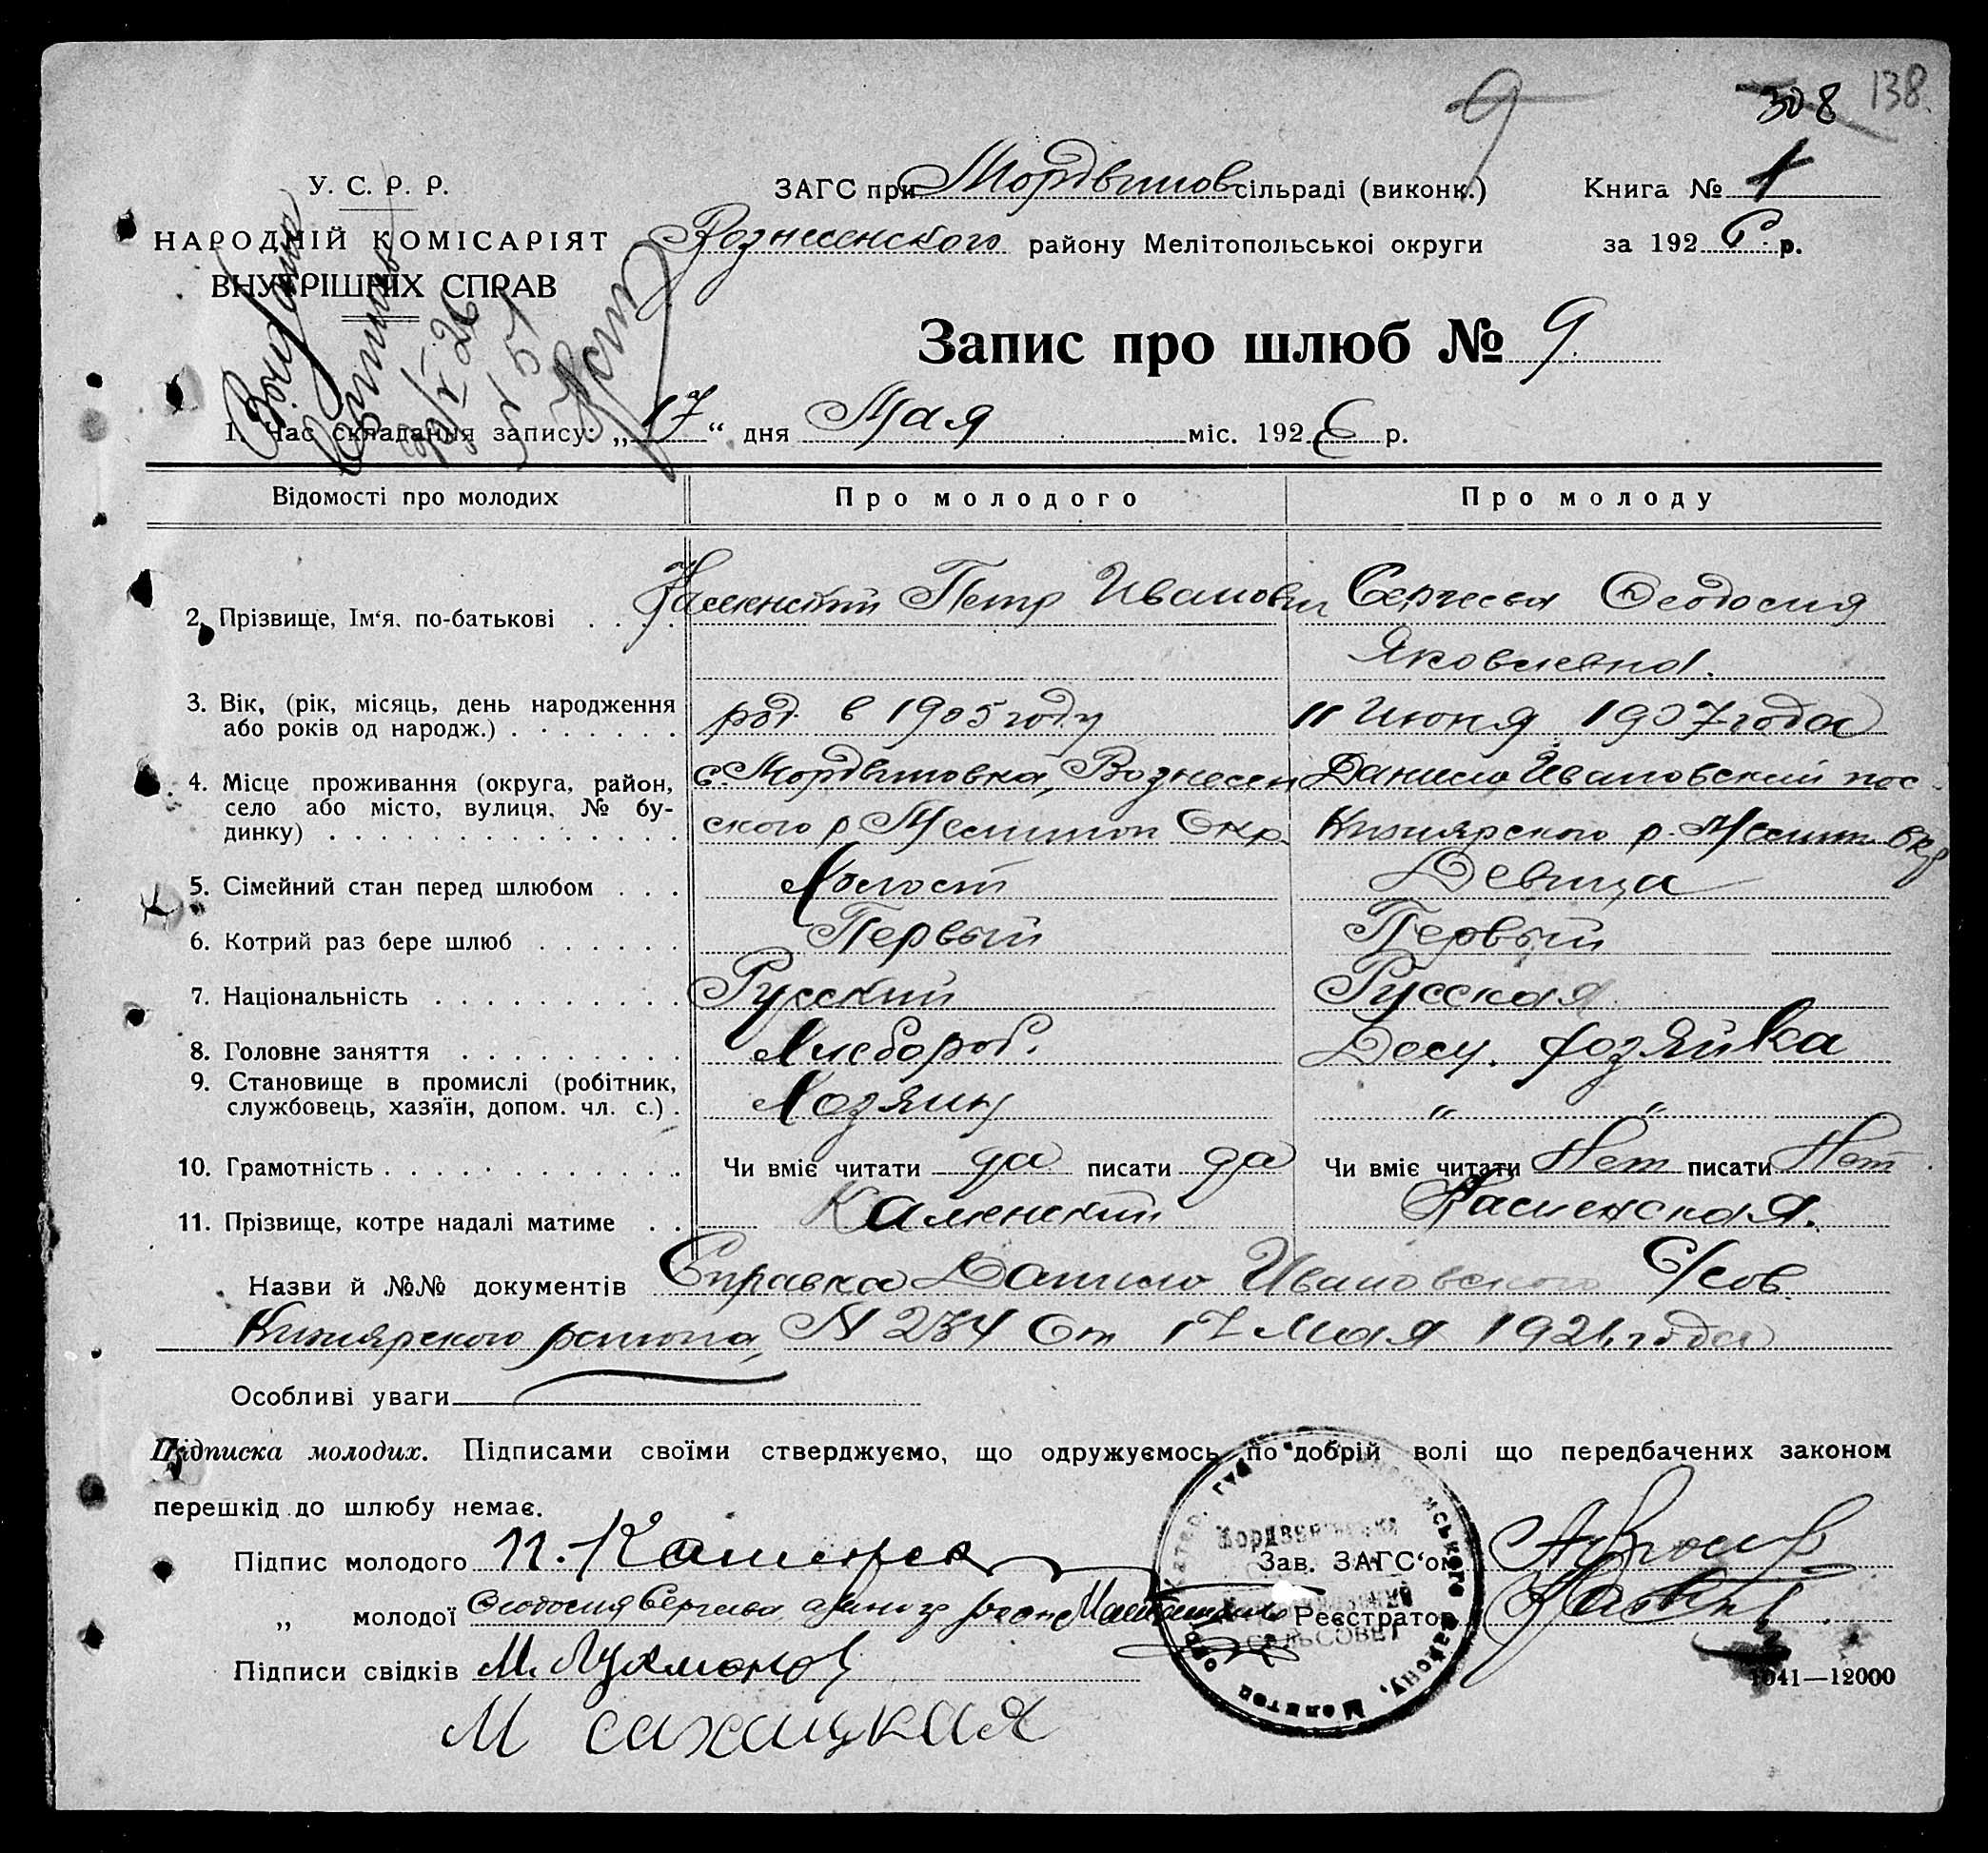 9 308 138.
У. С. Р. Р.
ЗАГС при Мордвинов сільраді (виконк.) Книга № 1
НАРОДНІЙ КОМІСАРІЯТ
ВНУТРІШНІХ СПРАВ
Вознесенского району Мелітопольськоі округи за 1926 р.
Запис про шлюб № 9.
1. Час складання запису: „17“ дня Мая міс. 1926 р.
Відомості про молодих Про молодого Про молоду
2. Прізвище, Ім‘я, по-батькові . . . . Каменский Петр Иванович Сергеева Феодосия
Яковлевна.
3. Вік, (рік, місяць, день народження
або років од народж.) . . . . . . . род. в 1905 году 11 Июня 1907 года
4. Місце проживання (округа, район, с. Мордвиновка, Вознесен Данило Ивановский пос.
село або місто, вулиця, № бу-
динку) . . . . . . . . . . . . . . ского р Мелитоп Окр. Кизиярского р. Мелит. Окр
5. Сімейний стан перед шлюбом . . . Холост Девица
6. Котрий раз бере шлюб . . . . . . Первый Первый
7. Національність . . . . . . . . . . Русский Русская
8. Головне заняття . . . . . . . . . Хлебороб. Дом. хозяйка
9. Становище в промислі (робітник,
службовець, хазяїн, допом. чл. с.) . Хозяин „ „
10. Грамотність . . . . . . . . . . . . Чи вміє читати да писати да Чи вміє читати Нет писати Нет
11. Прізвище, котре надалі матиме . . Каменский Каменская.
Назви й №№ документів Справка Данило Ивановского С/сов.
Кизиярского района, N 234 От 17 Мая 1926 года
Особливі уваги
Підписка молодих. Підписами своїми стверджуємо, що одружуємось по добрій волі що передбачених законом
перешкід до шлюбу немає.
Підпис молодого П. Каменск Зав. ЗАГС‘ом
„ молодої Феодосия Сергеева Реєстратор
Підписи свідків М. Лухманов
1041—12000
М сахацкая
СЕЛЬСОВЕТ